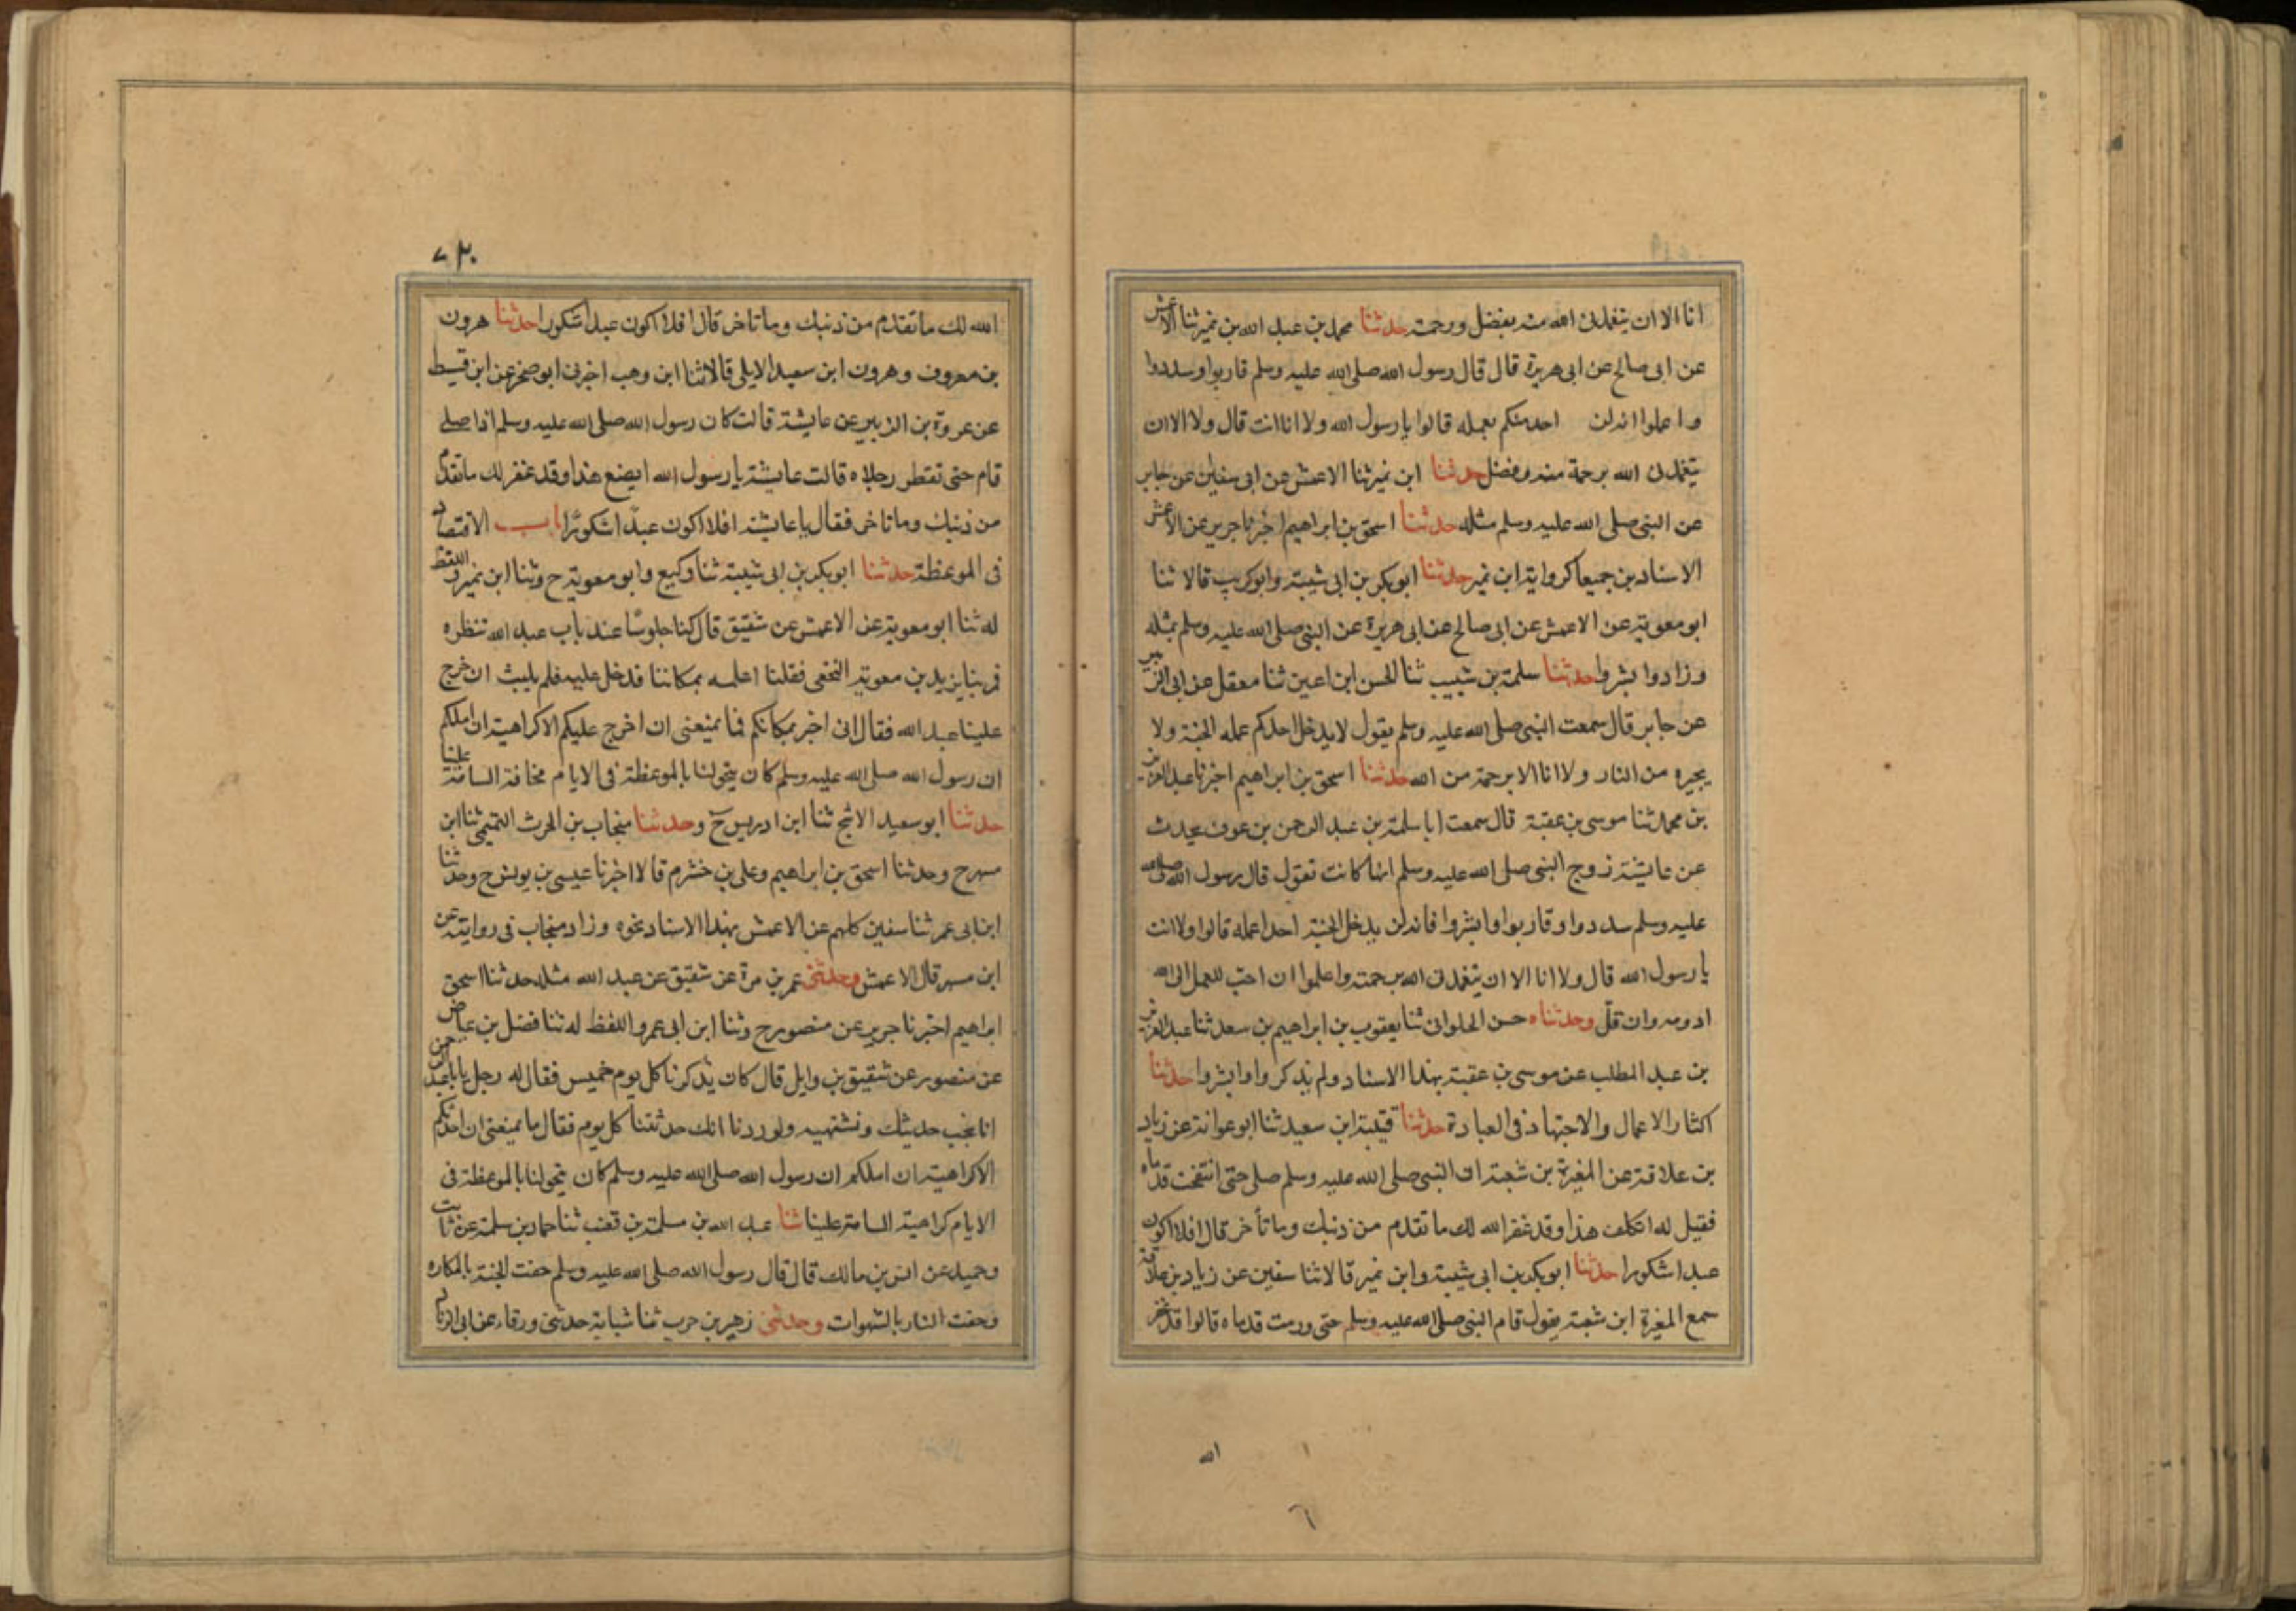 انا الا ان يتغمدنى الله منه بفضل ورحمة حدثنا محمد بن عبد الله بن نمير ثنا الاعمش
عن ابى صالح عن ابى هريرة قال قال رسول الله صلى الله عليه وسلم قاربوا وسددوا
واعلموا انه لن احد منكم بعمله قالوا يا رسول الله ولا انا انت قال ولا الا ان
يتغمدنى الله برحمة منه وفضل حدثنا ابن نمير ثنا الاعمش عن ابى سفين عن جابر
عن النبى صلى الله عليه وسلم مثله حدثنا اسحق بن ابراهيم اخبرنا جرير عن الاعمش
الاسنادين جميعا كرواية ابن نمير حدثنا ابو بكر بن ابى شيبة وابو كريب قالا ثنا
ابو معوية عن الاعمش عن ابى صالح عن ابى هريرة عن النبى صلى الله عليه وسلم بمثله
وزادوا بشروا حدثنا سلمة بن شبيب ثنا الحسن ابن اعين ثنا معقل عن ابى الزبير
عن جابر قال سمعت النبى صلى الله عليه وسلم يقول لا يدخل احدكم عمله الجنة ولا
يجيره من النار ولا انا الا برحمة من الله حدثنا اسحق بن ابراهيم اخبرنا عبد العزيز
بن محمد ثنا موسى بن عقبة قال سمعت ابا سلمة بن عبد الرحمن بن عوف يحدث
عن عايشة زوج النبى صلى الله عليه وسلم انها كانت تقول قال رسول الله صلى الله
عليه وسلم سددوا وقاربوا وابشروا فانه لن يدخل الجنة احدا عمله قالوا ولا انت
يا رسول الله قال ولا انا الا ان يتغمدنى الله برحمته واعلموا ان احب العمل الى الله
ادومه وان قل وحدثناه حسن الحلوانى ثنا يعقوب بن ابراهيم بن سعد ثنا عبد العزيز
بن عبد المطلب عن موسى بن عقبة بهذا الاسناد ولم يذكر وابشروا حدثنا
اكثار الاعمال والاجتهاد فى العبادة حدثنا قتيبة ابن سعيد ثنا ابو عوانة عن زياد
بن علاقة عن المغيرة بن شعبة ان النبى صلى الله عليه وسلم صلى حتى انتفخت قدماه
فقيل له اتكلف هذا وقد غفر الله لك ما تقدم من ذنبك وما تأخر قال افلا اكون
عبدا شكورا حدثنا ابو بكر بن ابى شيبة وابن نمير قالا ثنا سفين عن زياد بن علاقة
سمع المغيرة ابن شعبة يقول قام النبى صلى الله عليه وسلم حتى ورمت قدماه قالوا قد غفر
الله
٧٢٠
الله لك ما تقدم من ذنبك وما تاخر قال افلا اكون عبدا شكورا حدثنا هرون
بن معروف وهرون ابن سعيد الايلى قالا ثنا ابن وهب اخبرنى ابو صخر عن ابن قسيط
عن عروة بن الزبير عن عايشة قالت كان رسول الله صلى الله عليه وسلم اذا صلى
قام حتى تفطر رجلاه قالت عايشة يا رسول الله ايصنع هذا وقد غفر لك ما تقدم
من ذنبك وما تاخر فقال يا عايشة افلا اكون عبدا شكورا باب الاقتصاد
فى الموعظة حدثنا ابو بكر بن ابى شيبة ثنا وكيع وابو معوية ح وثنا ابن نمير واللفظ
له ثنا ابو معوية عن الاعمش عن شقيق قال كنا جلوسا عند باب عبد الله ننتظره
فمر بنا يزيد بن معوية النخعى فقلنا اعلمه بمكاننا فدخل عليه فلم يلبث ان خرج
علينا عبد الله فقال انى اخبر بمكانكم فما يمنعنى ان اخرج عليكم الا كراهية ان املكم
ان رسول الله صلى الله عليه وسلم كان يتخولنا بالموعظة فى الايام مخافة السامة علينا
حدثنا ابو سعيد الاشج ثنا ابن ادريس ح وحدثنا منجاب بن الحرث التميمى ثنا ابن
مسهر ح وحدثنا اسحق بن ابراهيم وعلى بن خشرم قالا اخبرنا عيسى بن يونس ح وحدثنا
ابن ابى عمر ثنا سفين كلهم عن الاعمش بهذا الاسناد نحوه وزاد منجاب فى روايته عن
ابن مسهر قال الاعمش وحدثنى عمر بن مرة عن شقيق عن عبد الله مثله حدثنا اسحق
ابراهيم اخبرنا جرير عن منصور ح وثنا ابن ابى عمر واللفظ له ثنا فضل بن عياض
عن منصور عن شقيق بن وايل قال كان يذكرنا كل يوم خميس فقال له رجل يا با عبد الرحمن
انا نحب حديثك ونشتهيه ولوددنا انك حدثتنا كل يوم فقال ما يمنعنى ان احدثكم
الا كراهية ان املكم ان رسول الله صلى الله عليه وسلم كان يتخولنا بالموعظة فى
الايام كراهية السامة علينا ثنا عبد الله بن مسلمة بن قعنب ثنا حماد بن سلمة عن ثابت
وحميد عن انس بن مالك قال قال رسول الله صلى الله عليه وسلم حفت الجنة بالمكاره
وحفت النار بالشهوات وحدثنى زهير بن حرب ثنا شبابة حدثنى ورقاء عن ابى الزناد